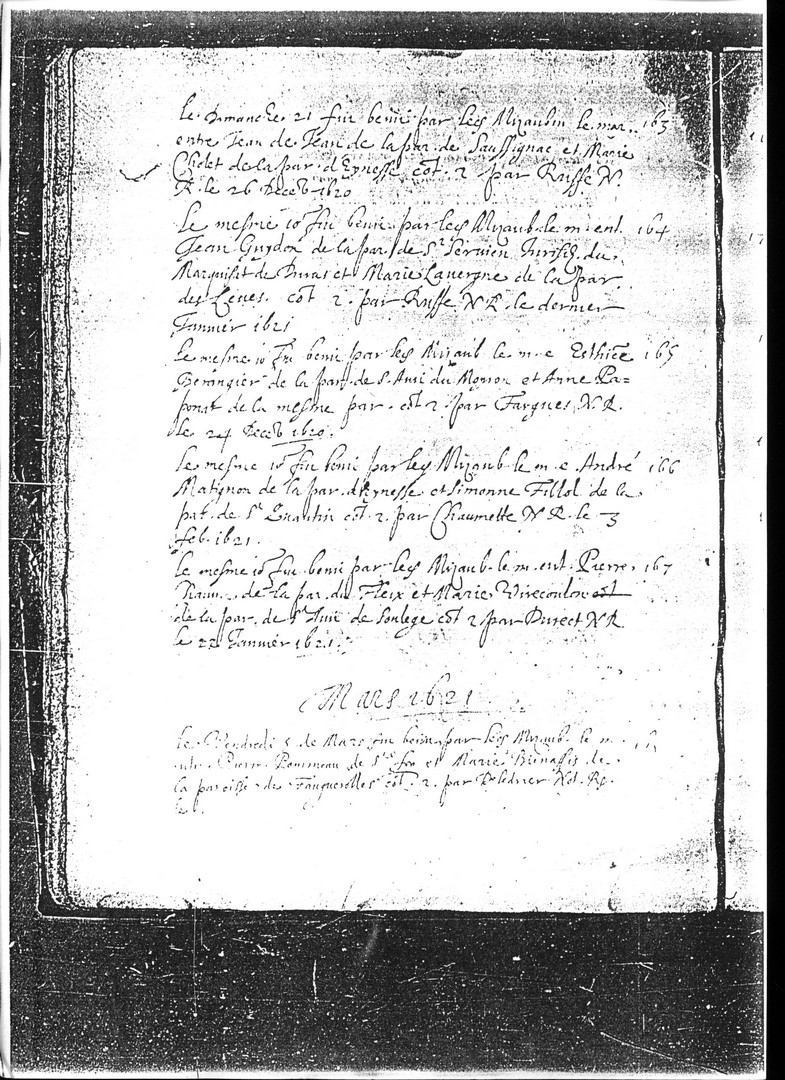 le Dimanche 21 fut beni par led Mizaubin le mar.. 163
entre Jean de Jean de la par. de Saussignac et Marie
Chidet de la par. d'Eynesse cot. 2 par Russe N.
R. le 26 Deceb 1620
Le mesme io fut beni par led Mizaub. le m ent. 164
Jean Guydon de la par. de St Servien Jurisd. du
Marquisat de Duras et Marie Lavergne de la par.
des Leves. cot 2. par Russe N R. le dernier
Janvier 1621
Le mesme io fut beni par led Mizaub le m. e 165
Berangier de la par. de S. Avi du Moyron et Anne Pa=
ponat de la mesme par. cot 2. par Fargues N. R.
le 24 Deceb 1620.
Le mesme io fut beni par led Mizaub le m. e André 166
Matignon de la par. d'Eynesse et Simonne Fillol de la
par. de St Quantin cot. 2. par Chaumette N R. le 3
feb. 1621.
Le mesme io fut beni par led Mizaub. le m. ent. Pierre 167
de la par. du Fleix et Marie Virecoulon cot
de la par. de St Avi de Soulege cot 2 par Durect N R
le 22 Janvier 1621.
Mars 1621
le Vendredi 5 de Mars fut beni par led Mizaub. le m.
Pierre Pommeau de Ste foy et Marie Bienassis de
la paroisse de Fauguerolles cot. 2. par Not. Ro.
le